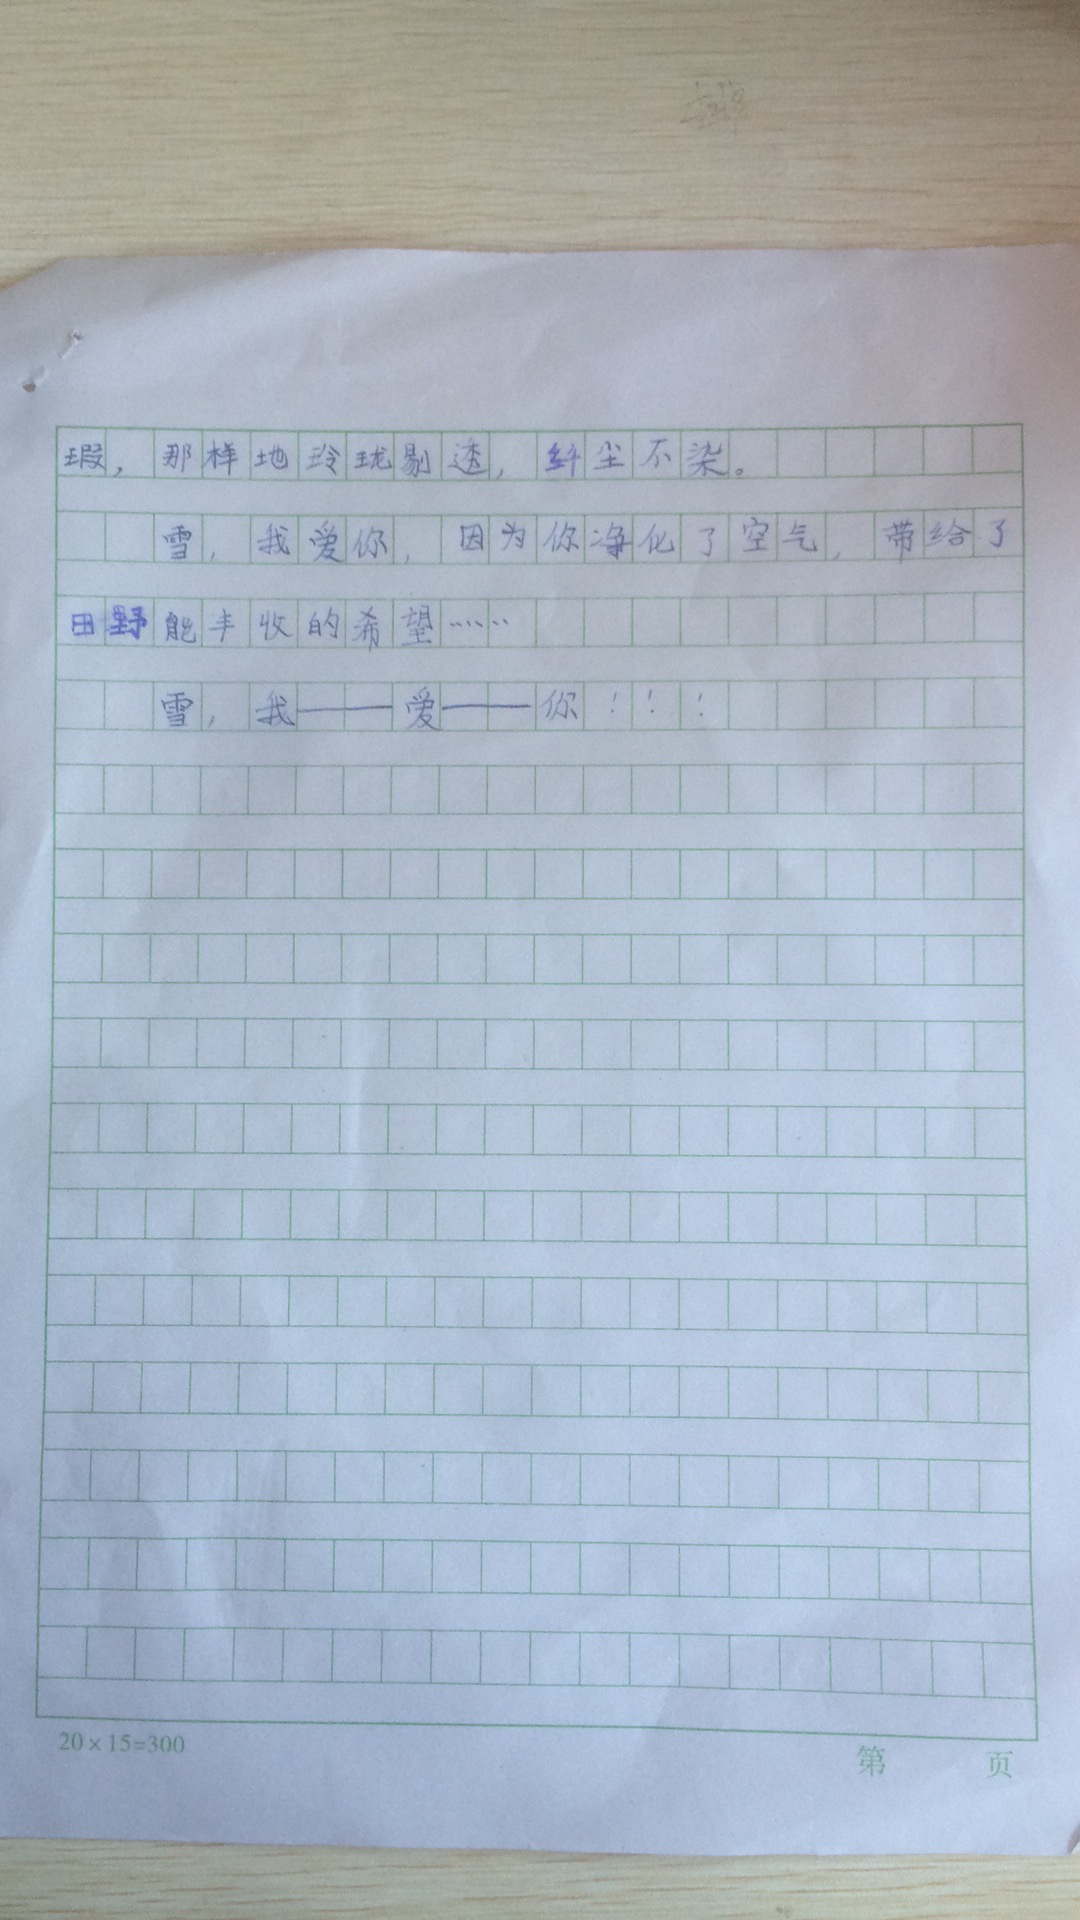 瑕，那样地玲珑剔透，纤尘不染。
雪，我爱你，因为你净化了空气，带给了
田野能丰收的希望……
雪，我——爱——你！！！
20×15=300
第 页